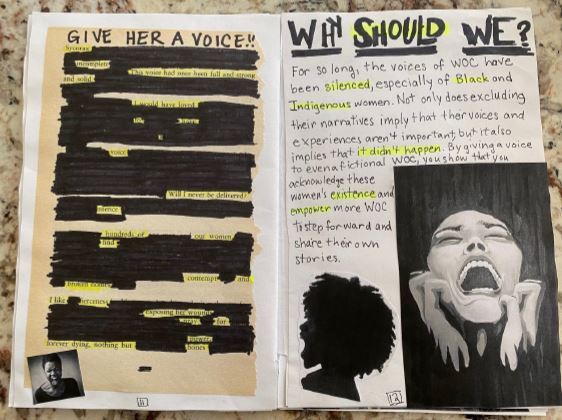 GIVE HER A VOICE!!
Sycorax
incomplete
and solid
This voice had once been full and strong
I would have loved
voice
Will I never be delivered?
silence
hundreds of
our women
find
contempt
and
broken bones
I like
fierceness
exposing her wound
for
power
forever dying, nothing but
bones
11
WHY SHOULD WE?
For so long, the voices of WOC have
been silenced, especially of Black and
Indigenous women. Not only does excluding
their narratives imply that their voices and
experiences aren't important, but it also
implies that it didn't happen. By giving a voice
to even a fictional WOC, you show that you
acknowledge these
women's existence and
empower more WOC
to step forward and
share their own
stories.
12